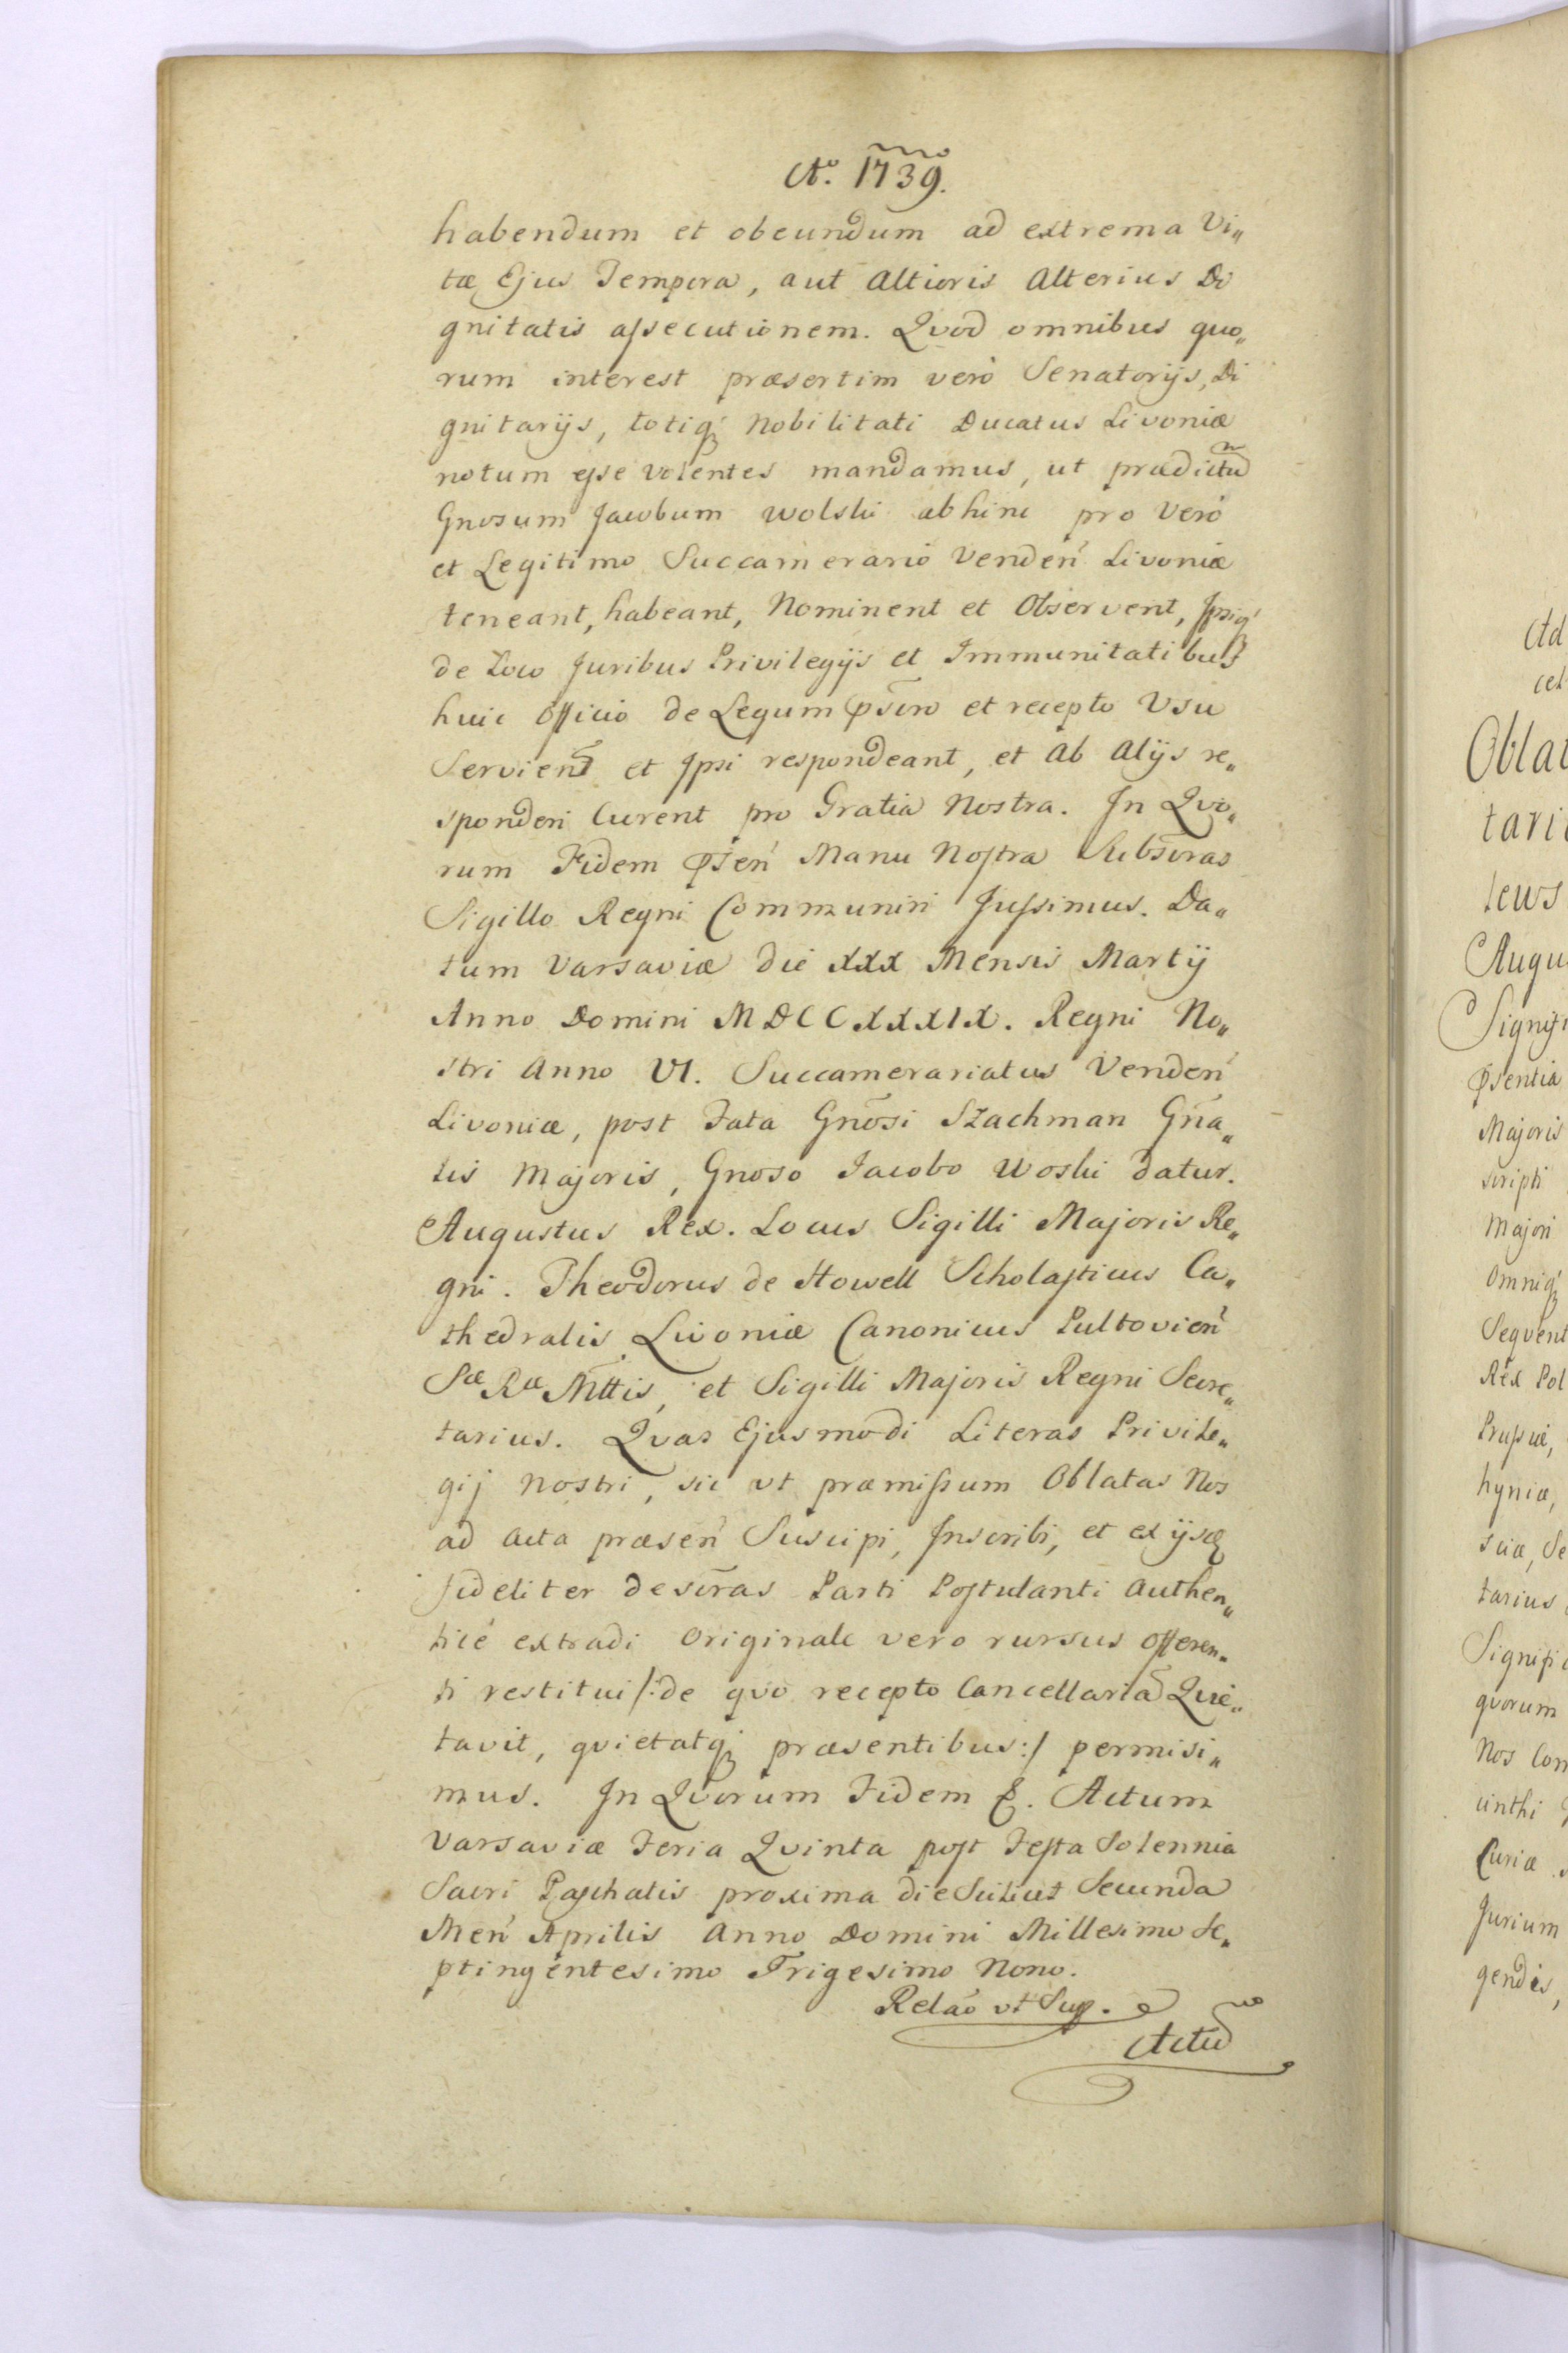 Aº. 1739.
habendum et obeundum ad extrema Vi„
tæ Ejus Tempora, aut Altioris Alterius Di
gnitatis assecutionem. Qvod omnibus quo„
rum interest præsertim verò Senatorijs, Di
gnitarijs, totiq́ Nobilitati Ducatus Livoniæ
notum esse volentes mandamus, ut prædictũ
Gnosum Jacobum Wolski abhinc pro Verò
et Legitimo Succamerario Venden̄ Livoniæ
teneant, habeant, Nominent et Observent, Ipsiq́
de Loco Juribus Privilegijs et Immunitatibus
huic Officio de Legum p̄scrō et recepto Usu
Servien̄ et Ipsi respondeant, et Ab Alijs re„
sponderi Curent pro Gratia Nostra. In Qvo„
rum Fidem p̄sen̄ Manu Nostra Subscr̄as
Sigillo Regni Communiri Jussimus. Da„
tum Varsaviæ die XXX Mensis Martij
Anno Domini MDCCXXXIX. Regni No„
stri Anno VI. Succamerariatus Venden̄
Livoniæ, post Fata Gnōsi Szachman Gn̄a„
lis Majoris, Gnoso Jacobo Woski datur.
Augustus Rex. Locus Sigilli Majoris Re„
gni. Theodorus de Howell Scholasticus Ca„
thedralis Livoniæ Canonicus Pultovien̄
Sæ Ræ Mttis, et Sigilli Majoris Regni Secre„
tarius. Qvas Ejusmodi Literas Privile„
gij Nostri, sic ut præmissum Oblatas Nos
ad Acta præsen̄ Suscipi, Inscribi, et ex ijsdē
fideliter descr̄as Parti Postulanti Authen„
ticè extradi Originale vero rursus Offeren„
ti restitui /: de qvo recepto Cancellariā Qvie„
tavit, qvietatq́ præsentibus :/ permisi„
mus. In Qvorum Fidem &. Actum
Varsaviæ Feria Qvinta post Festa Solennia
Sacri Paschatis proxima die Scilicet Secunda
Men̄ Aprilis Anno Domini Millesimo Se„
ptingentesimo Trigesimo Nono.
Relaõ ut Sup.
Actũ
Ad
Oblat
tari
teus
Augu
Signifi
p̄sentia
Majoris
scripti
Majori
Omniq́
Seqvent
Rex Pol
Prussiæ,
hyniæ,
sciæ, Se
tarius
Signifi
qvorum
Nos Con
cinthi
Curiæ
Jurium
gendis,